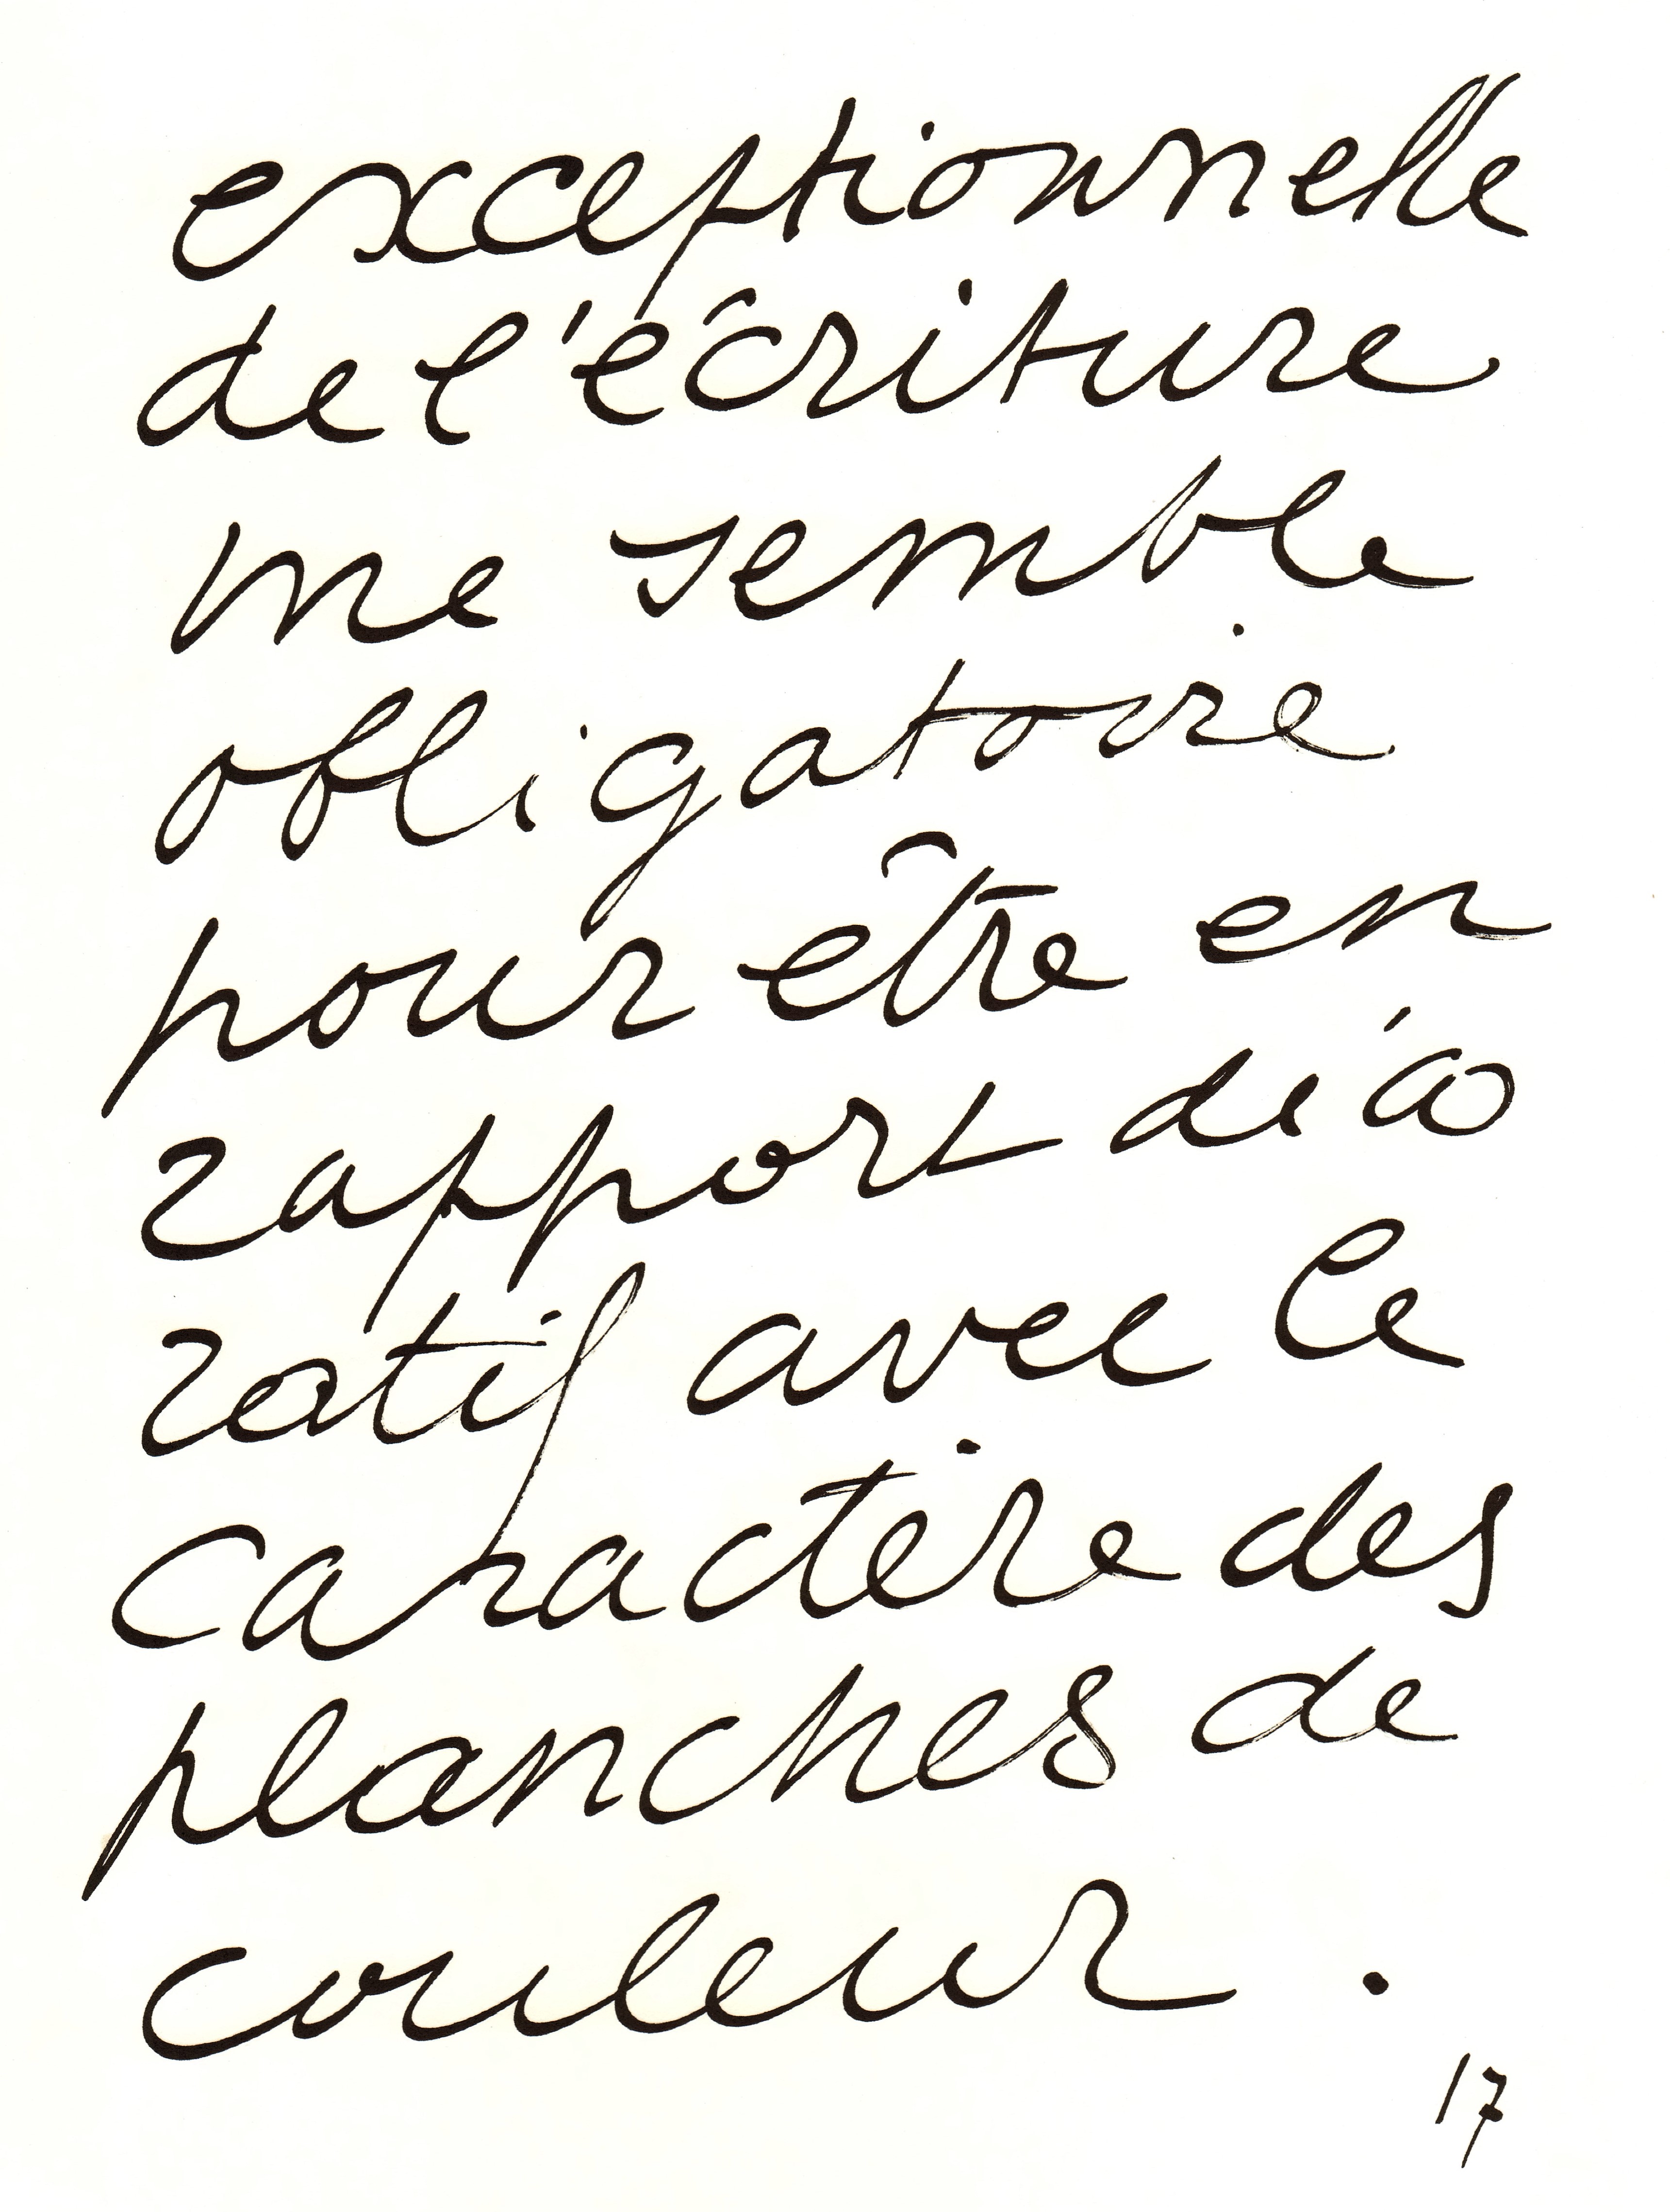 exceptionnelle
de l'écriture
me semble
obligatoire
pour être en
rapport déco
ratif avec le
caractère des
planches de
couleur.
17